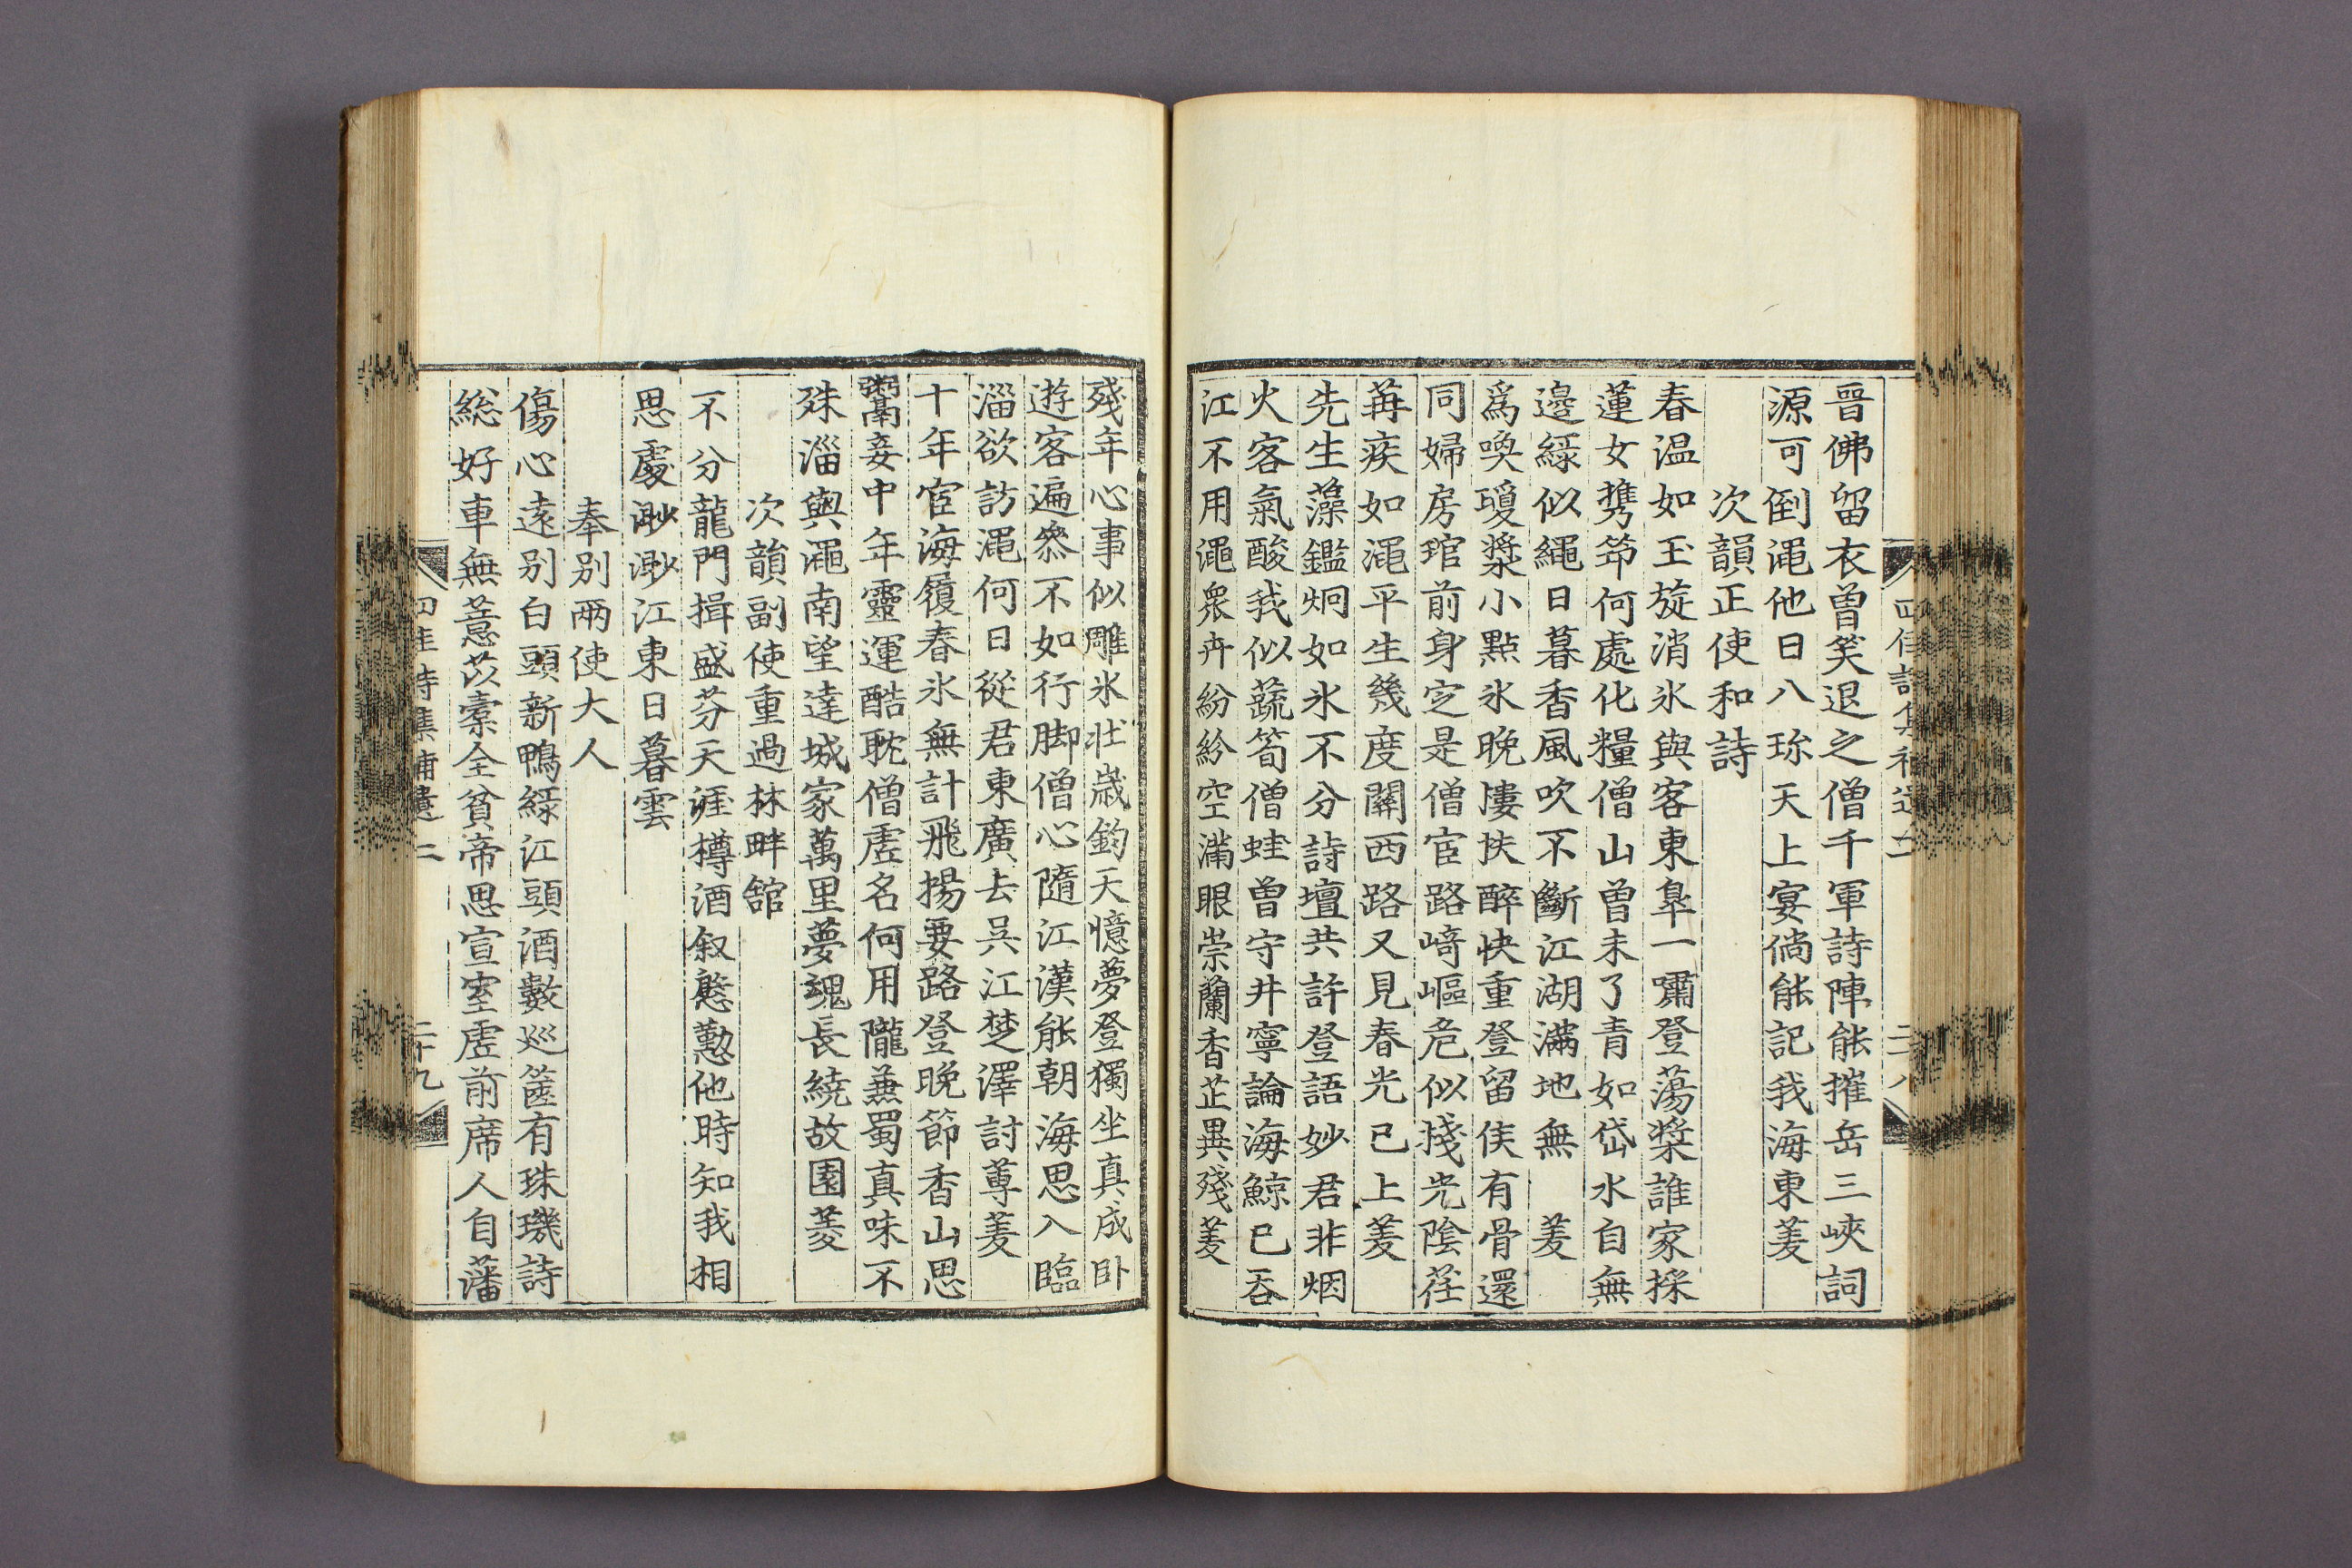 晉佛留衣曾笑退之僧千軍詩陣能摧岳三峽詞
源可倒澠他日八珎天上宴倘能記我海東菱
次韻正使和詩
春温如玉旋消氷與客東皐一嘯登蕩槳誰家採
蓮女携笻何處化糧僧山曾未了青如岱水自無
邊綠似繩日暮香風吹不斷江湖滿地無 菱
爲喚瓊漿小點氷晩慺扶醉快重登留侯有骨還
同婦房琯前身定是僧宦路﨑嶇危似棧光陰荏
苒疾如澠平生幾度關西路又見春光已上菱
先生藻鑑炯如氷不分詩壇共許登語妙君非烟
火客氣酸我似蔬筍僧蛙曾守井寧論海鯨已吞
江不用澠衆卉紛紛空滿眼崇蘭香芷異殘菱
殘年心事似雕氷壯歲鈞天憶夢登獨坐真成卧
遊客遍叅不如行脚僧心隨江漢能朝海思入臨
淄欲訪澠何日從君東廣去吳江楚澤討蓴菱
十年宦海履春氷無計飛揚要路登晩節香山思
鬻妾中年靈運酷耽僧虛名何用隴蒹蜀真味不
殊淄與澠南望達城家萬里夢魂長繞故園菱
次韻副使重過林畔舘
不分龍門揖盛芬天涯樽酒叙慇懃他時知我相
思處渺渺江東日暮雲
奉別兩使大人
傷心遠別白頭新鴨綠江頭酒數巡篋有珠璣詩
総好車無薏苡橐全貧帝思宣室虛前席人自藩
四佳詩集補遺二
二十八
四佳詩集補遺二
二十九